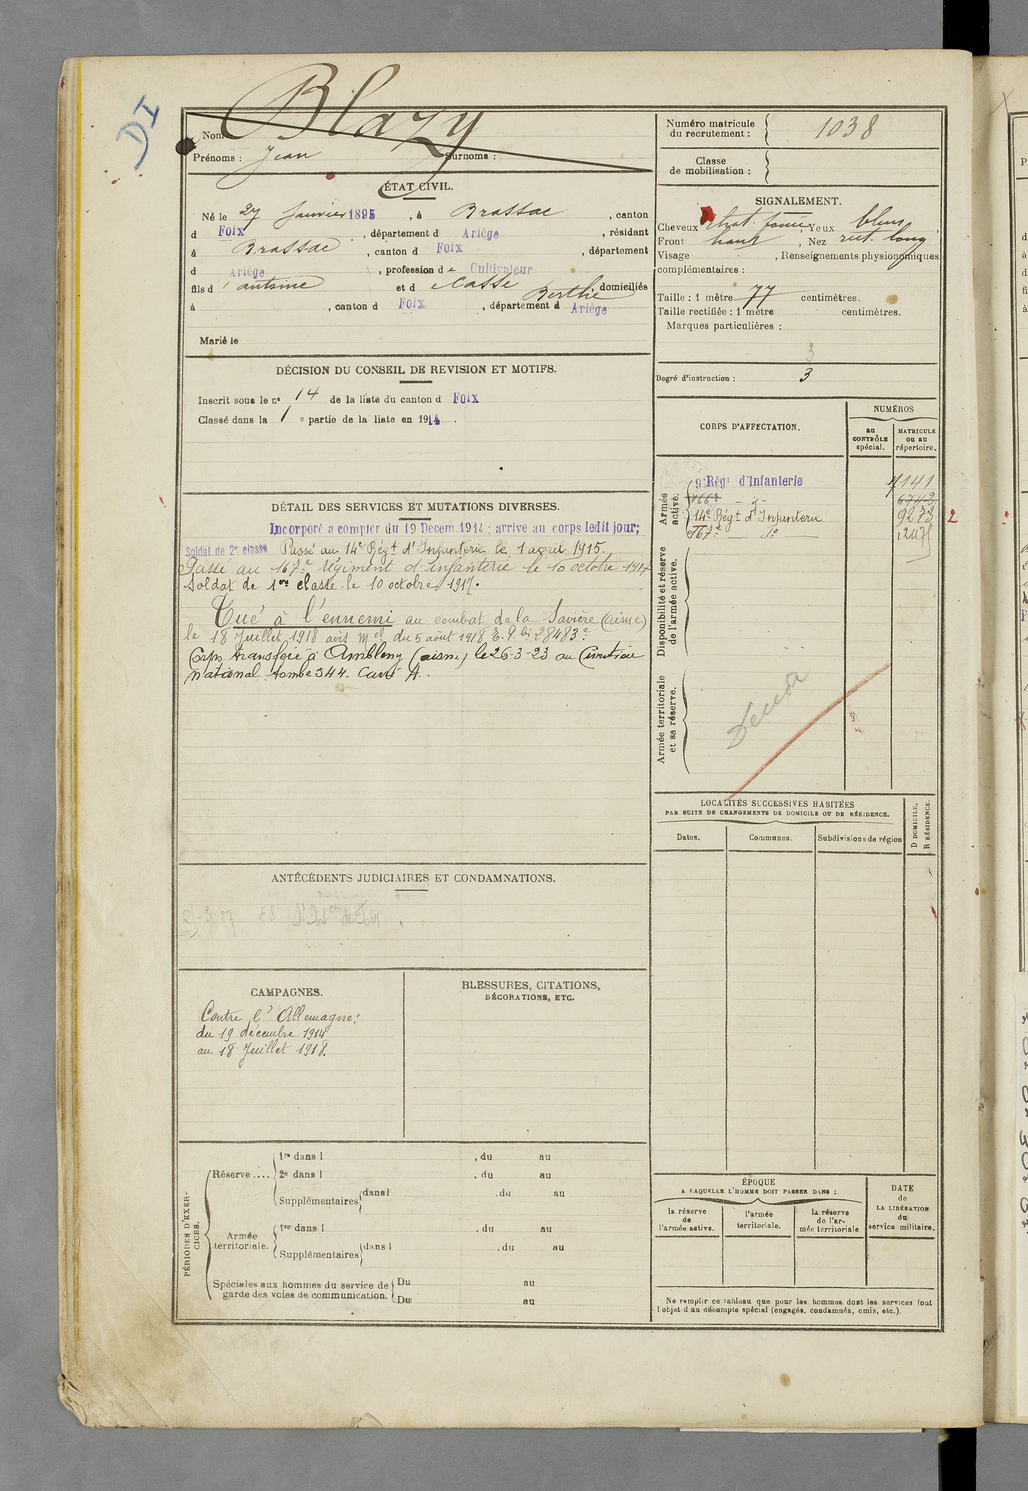 DI
Nom Blazy
Prénoms : Jean Surnoms :
Numéro matricule du recrutement : 1038
Classe de mobilisation :
ÉTAT CIVIL.
Né le 27 Janvier 1895, à Brassac, canton
d Foix, département d Ariège, résidant
à Brassac, canton d Foix, département
d Ariège, profession de Cultivateur
fils d'Antoine et d Berthe domiciliés
à , canton d Foix, département d Ariège
Marié le
SIGNALEMENT.
Cheveux chat. foncé, Yeux bleus
Front haut, Nez rect. long
Visage , Renseignements physionomiques
complémentaires :
Taille : 1 mètre 77 centimètres.
Taille rectifiée : 1 mètre centimètres.
Marques particulières :
3
Degré d'instruction : 3
DÉCISION DU CONSEIL DE REVISION ET MOTIFS.
Inscrit sous le n° 14 de la liste du canton d Foix
Classé dans la 1e partie de la liste en 1914.
DÉTAIL DES SERVICES ET MUTATIONS DIVERSES.
Incorporé à compter du 19 Décem. 1914 ; arrivé au corps ledit jour;
Soldat de 2e classe Passé au 14e Régt d'Infanterie le 1 avril 1915.
Passé au 167e Régiment d'Infanterie le 10 octobre 1917
Soldat de 1ère classe le 10 octobre 1917.
Tué à l'ennemi au combat de la Savière (aisne)
le 18 Juillet 1918 avis mel du 5 août 1918
Corps transféré à Ambleny (aisne) le 26-3-23 au Cimetière
national tombe 544. Carré A.
CORPS D'AFFECTATION.
NUMÉROS
au CONTRÔLE spécial.
MATRICULE ou au répertoire.
Armée active.
9e Régt d'Infanterie 7141
166e - d°- 6742
14e Régt d'Infanterie 9273 2
167e d°
Disponibilité et réserve de l'armée active.
Armée territoriale et sa réserve.
Décédé
LOCALITÉS SUCCESSIVES HABITÉES
PAR SUITE DE CHANGEMENTS DE DOMICILE OU DE RÉSIDENCE.
Dates. Communes. Subdivisions de région D DOMICILE. R RÉSIDENCE.
ANTÉCÉDENTS JUDICIAIRES ET CONDAMNATIONS.
CAMPAGNES.
Contre l'Allemagne :
du 19 décembre 1914
au 18 Juillet 1918.
BLESSURES, CITATIONS,
DÉCORATIONS, ETC.
PÉRIODES D'EXERCICES.
Réserve .... 1re dans l , du au
2e dans l , du au
Supplémentaires dans l , du au
Armée territoriale. 1re dans l , du au
Supplémentaires dans l , du au
Spéciales aux hommes du service de garde des voies de communication. Du au
Du au
ÉPOQUE
A LAQUELLE L'HOMME DOIT PASSER DANS :
la réserve de l'armée active.
l'armée territoriale.
la réserve de l'armée territoriale
DATE de LA LIBÉRATION du service militaire.
Ne remplir ce tableau que pour les hommes dont les services font
l'objet d'un décompte spécial (engagés, condamnés, omis, etc.).